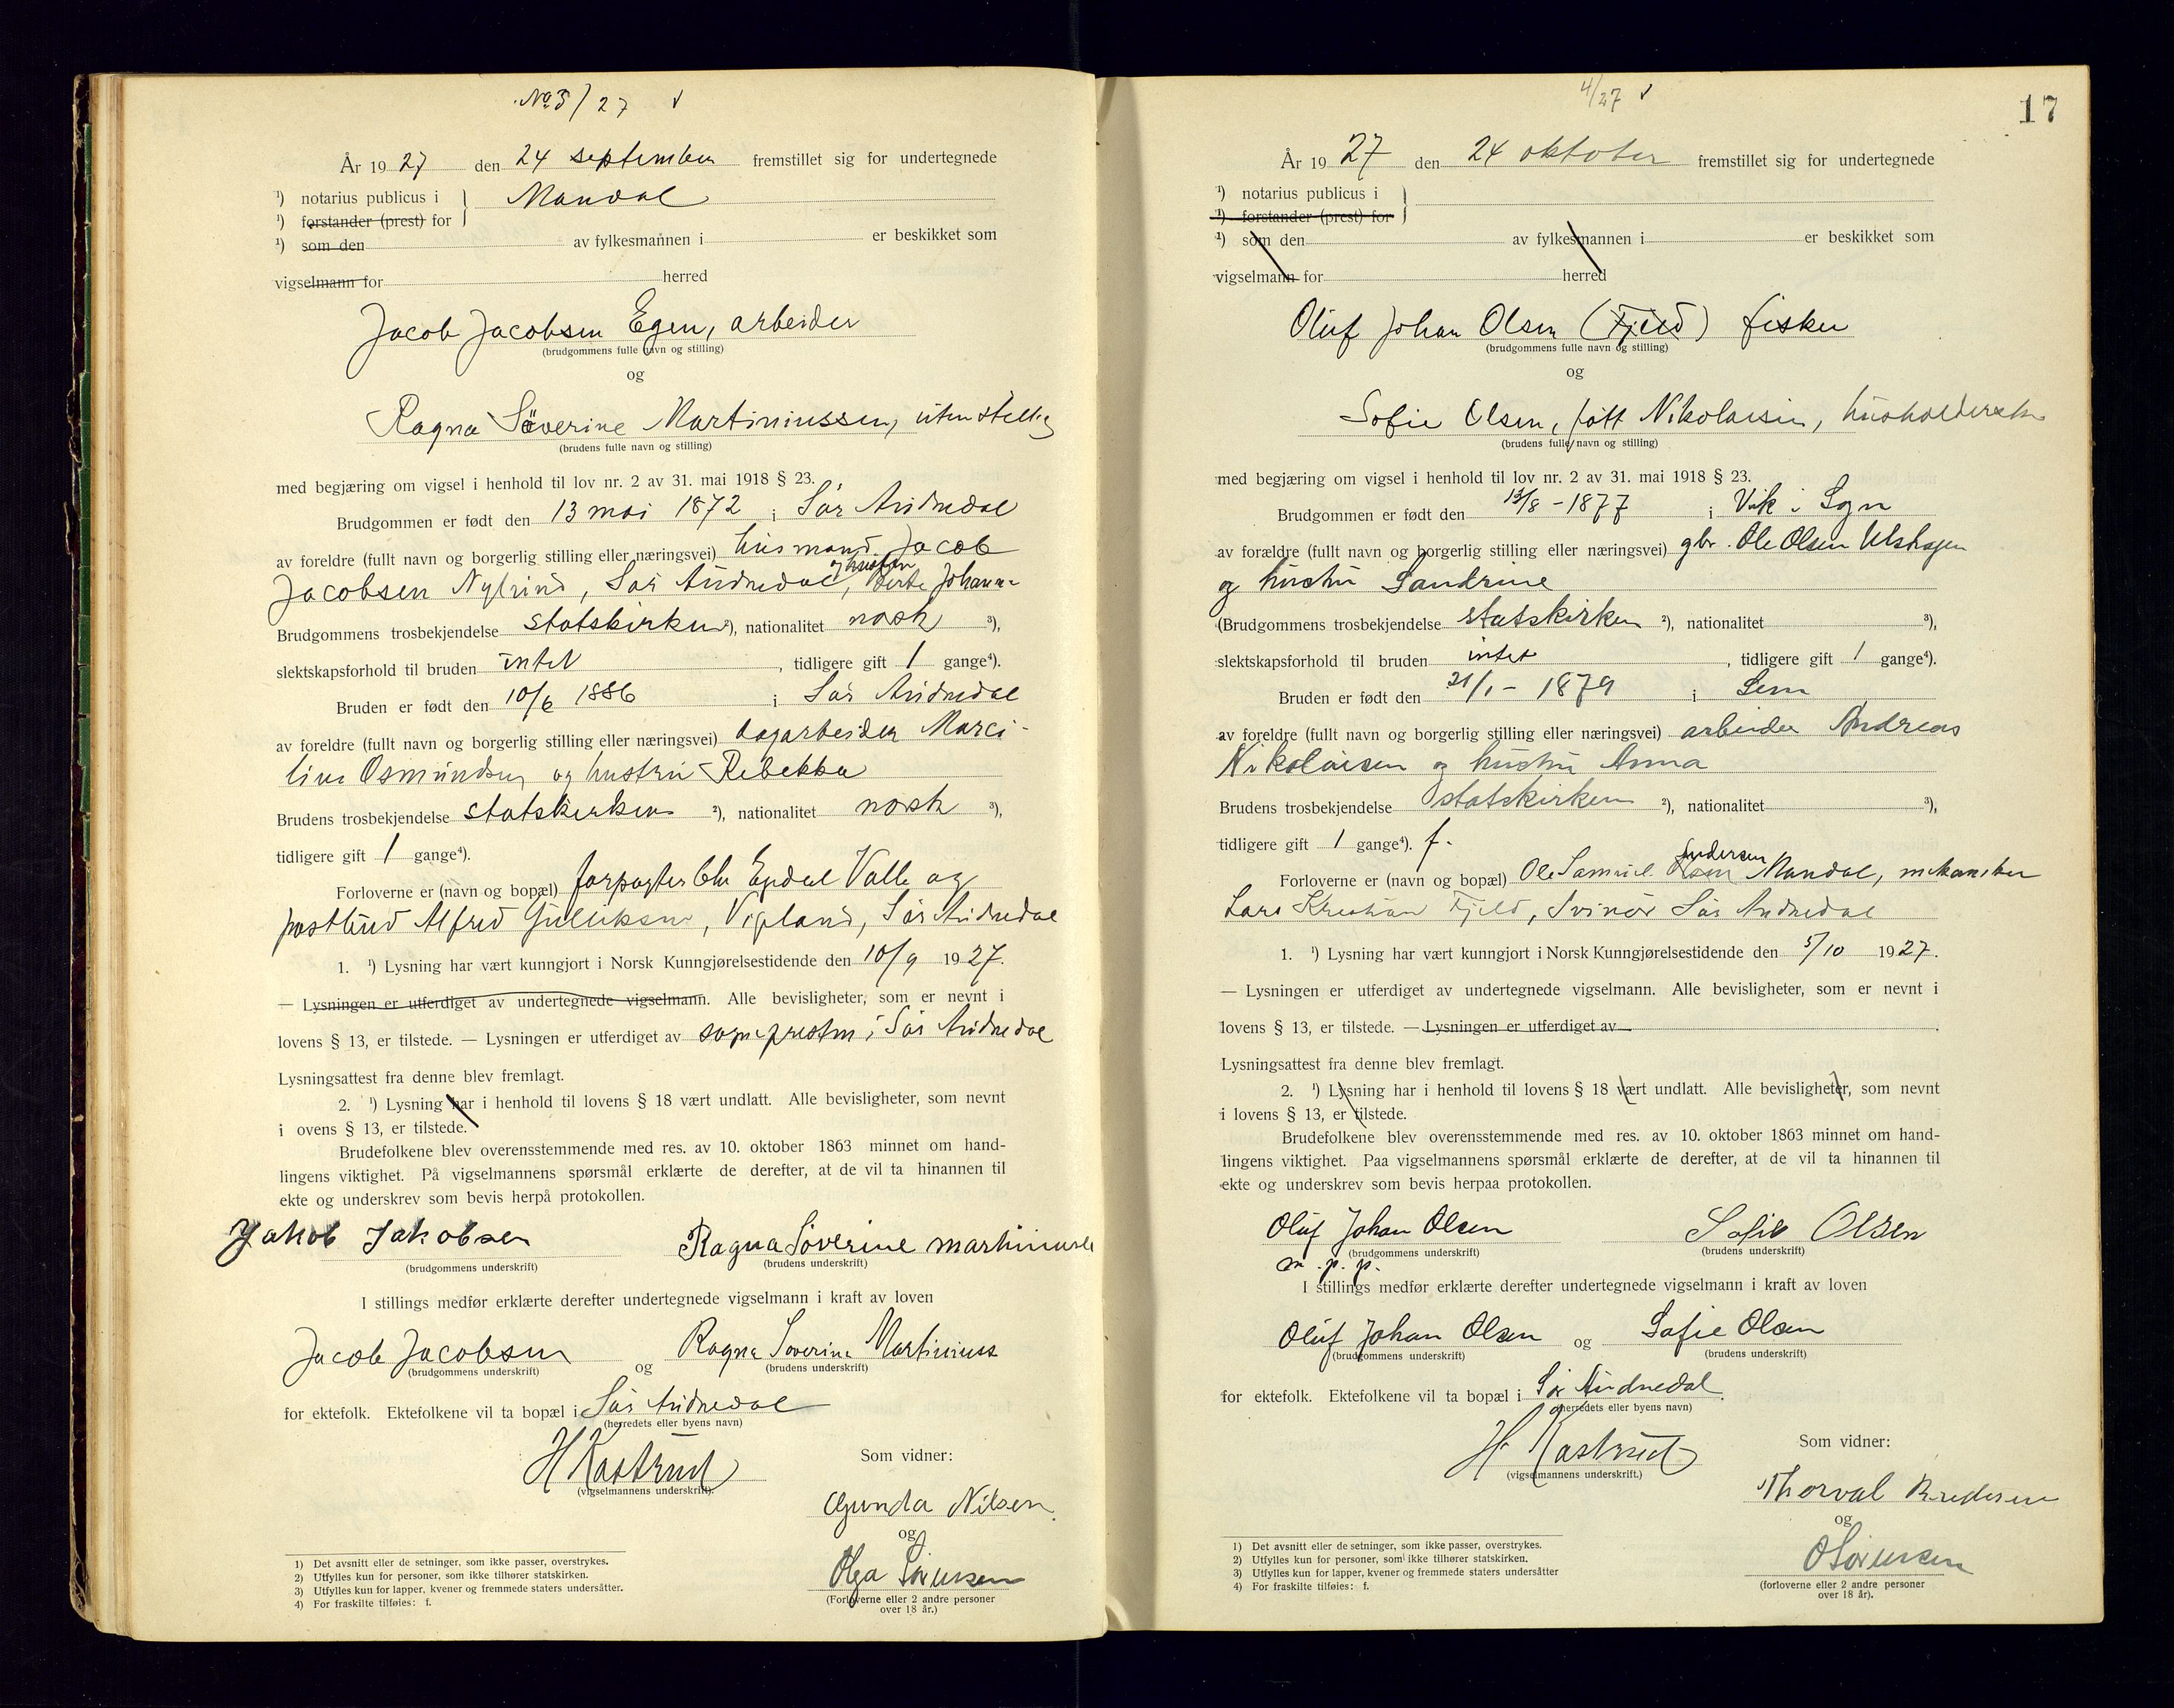 No 3/27 ✓
År 1927 den 24 september fremstillet sig for undertegnede
¹) notarius publicus i } Mandal
¹) forstander (prest) for
¹) som den av fylkesmannen i er beskikket som
vigselmann for herred
Jacob Jacobsen Egen, arbeider
(brudgommens fulle navn og stilling)
og
Ragna Söverine Martiniussen, uten stellig
(brudens fulle navn og stilling)
med begjæring om vigsel i henhold til lov nr. 2 av 31. mai 1918 § 23.
Brudgommen er født den 13 mai 1872 i Sør Audnedal
av foreldre (fullt navn og borgerlig stilling eller næringsvei) husmand Jacob
Jacobsen Nylund, Sør Audnedal, og hustru Berte Johanne
Brudgommens trosbekjendelse statskirken ²), nationalitet norsk ³),
slektskapsforhold til bruden intet, tidligere gift 1 gange⁴).
Bruden er født den 10/6 1886 i Sør Audnedal
av foreldre (fullt navn og borgerlig stilling eller næringsvei) dagarbeider Marci-
lius Osmundsen og hustru Rebekka
Brudens trosbekjendelse statskirken ²), nationalitet norsk ³),
tidligere gift 1 gange⁴).
Forloverne er (navn og bopæl) forpagter Chr Egdal Valle og
postbud Alfred Gulliksen, Vigeland, Sør Audnedal
1. ¹) Lysning har vært kunngjort i Norsk Kunngjørelsestidende den 10/9 1927.
— Lysningen er utferdiget av undertegnede vigselmann. Alle bevisligheter, som er nevnt i
lovens § 13, er tilstede. — Lysningen er utferdiget av sognepresten i Sør Audnedal
Lysningsattest fra denne blev fremlagt.
2. ¹) Lysning har i henhold til lovens § 18 vært undlatt. Alle bevisligheter, som nevnt
i ovens § 13, er tilstede.
Brudefolkene blev overensstemmende med res. av 10. oktober 1863 minnet om hand-
lingens viktighet. På vigselmannens spørsmål erklærte de derefter, at de vil ta hinannen til
ekte og underskrev som bevis herpå protokollen.
Jakob Jakobsen Ragna Söverine martiniussen
(brudgommens underskrift) (brudens underskrift)
I stillings medfør erklærte derefter undertegnede vigselmann i kraft av loven
Jacob Jacobsen og Ragna Soverine Martiniuss
(brudgommens underskrift) (brudens underskrift)
for ektefolk. Ektefolkene vil ta bopæl i Sør Audnedal
(herredets eller byens navn)
H Kastrud
(vigselmannens underskrift).
Som vidner:
Gunda Nilsen
og
Olga Sørensen
(Forloverne eller 2 andre personer
over 18 år.)
1) Det avsnitt eller de setninger, som ikke passer, overstrykes.
2) Utfylles kun for personer, som ikke tilhører statskirken.
3) Utfylles kun for lapper, kvener og fremmede staters undersåtter.
4) For fraskilte tilføies: f.
4/27 ✓
17
År 1927 den 24 oktober fremstillet sig for undertegnede
¹) notarius publicus i }
¹) forstander (prest) for
¹) som den av fylkesmannen i er beskikket som
vigselmann for herred
Oluf Johan Olsen (Fjeld) fisker
(brudgommens fulle navn og stilling)
og
Sofie Olsen, født Nikolaisen, husholderske
(brudens fulle navn og stilling)
med begjæring om vigsel i henhold til lov nr. 2 av 31. mai 1918 § 23.
Brudgommen er født den 13/8 - 1877 i Vik i Sogn
av forældre (fullt navn og borgerlig stilling eller næringsvei) gbr. Ole Olsen
og hustru Sandrine
(Brudgommens trosbekjendelse statskirken ²), nationalitet ³),
slektskapsforhold til bruden intet, tidligere gift 1 gange⁴).
Bruden er født den 21/1 - 1879 i Sem
av foreldre (fullt navn og borgerlig stilling eller næringsvei) arbeider Andreas
Nikolaisen og hustru Anna
Brudens trosbekjendelse statskirken ²), nationalitet ³),
tidligere gift 1 gange⁴). f.
Forloverne er (navn og bopæl) Ole Samuel Olsen Andersen Mandal, mekaniker
Lars Kristian Fjeld, Svinør Sør Audnedal
1. ¹) Lysning har vært kunngjort i Norsk Kunngjørelsestidende den 5/10 1927.
— Lysningen er utferdiget av undertegnede vigselmann. Alle bevisligheter, som er nevnt i
lovens § 13, er tilstede. — Lysningen er utferdiget av — .
Lysningsattest fra denne blev fremlagt.
2. ¹) Lysning har i henhold til lovens § 18 vært undlatt. Alle bevisligheter, som nevnt
i lovens § 13, er tilstede.
Brudefolkene blev overensstemmende med res. av 10. oktober 1863 minnet om hand-
lingens viktighet. Paa vigselmannens spørsmål erklærte de derefter, at de vil ta hinannen til
ekte og underskrev som bevis herpaa protokollen.
Oluf Johan Olsen Sofie Olsen
(brudgommens underskrift) (brudens underskrift)
m. p. p.
I stillings medfør erklærte derefter undertegnede vigselmann i kraft av loven
Oluf Johan Olsen og Sofie Olsen
(brudgommens underskrift) (brudens underskrift)
for ektefolk. Ektefolkene vil ta bopæl i Sør Audnedal.
(herredets eller byens navn)
H. Kastrud
(vigselmannens underskrift.)
Som vidner:
Thorval
og
O Sørensen
(forloverne eller 2 andre personer
over 18 år).
1) Det avsnitt eller de setninger, som ikke passer, overstrykes.
2) Utfylles kun for personer, som ikke tilhører statskirken.
3) Utfylles kun for lapper, kvener og fremmede staters undersåtter
4) For fraskilte tilføies: f.